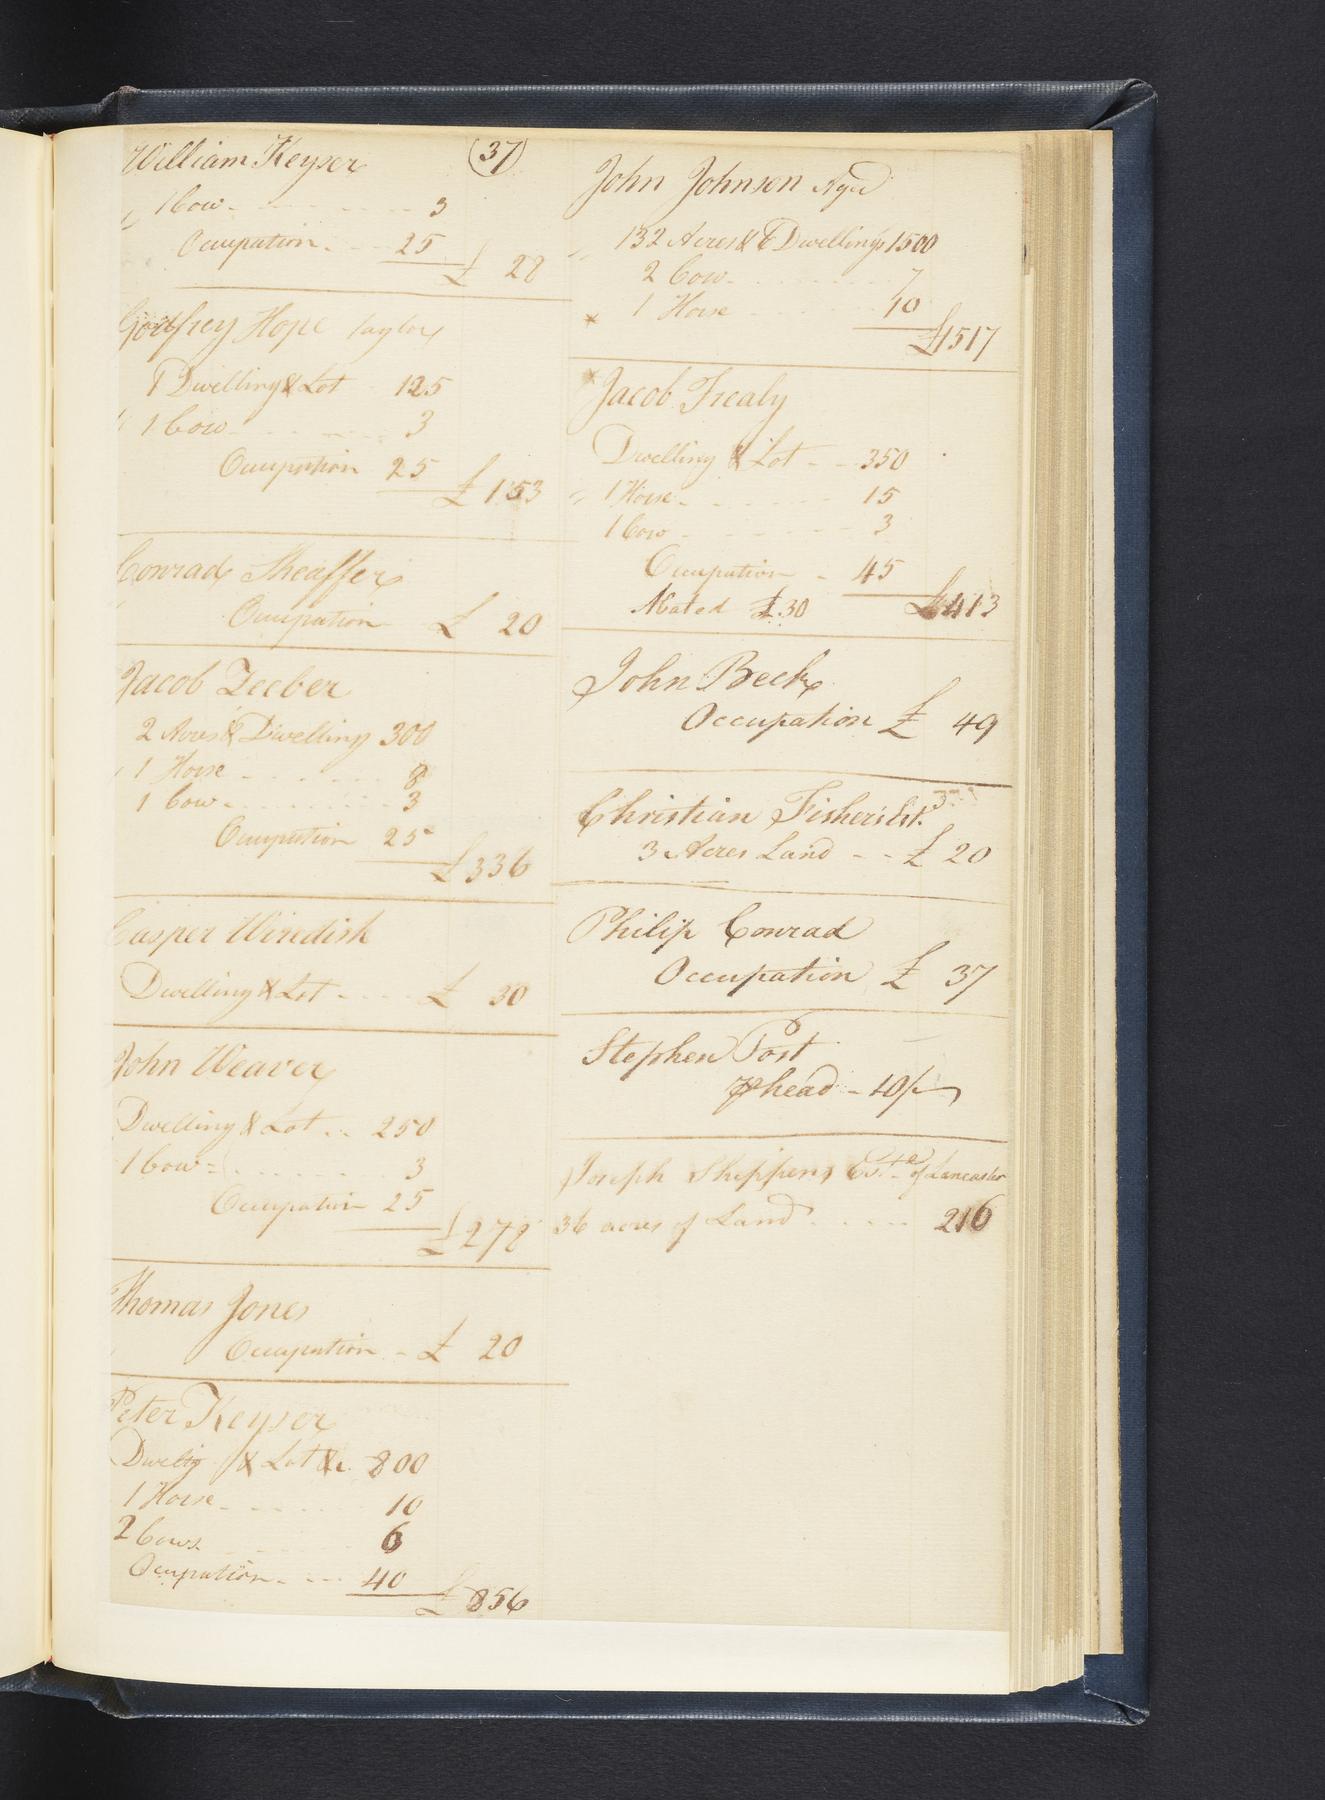 (37)
William Keyser
1 Cow 3
Occupation 25
£ 28
Godfrey Hope Taylor
1 Dwelling & Lot 125
1 Cow 3
Occupation 25
£ 153
Conrad Sheaffer
Occupation £ 20
Jacob Zeeber
2 Acres & Dwelling 300
1 Horse 8
1 Cow 3
Occupation 25
£ 336
Casper Wiredish
Dwelling & Lot £ 30
John Weaver
Dwelling & Lot 250
1 Cow 3
Occupation 25
£ 278
Thomas Jones
Occupation - £ 20
Peter Keyser
Dwellg & Lot &c 800
1 Horse 10
2 Cows 6
Ocupation 40
£ 856
John Johnson
132 Acres & Dwellings 1500
2 Cow 7
1 Horse 10
£1517
Jacob Frealy
Dwelling & Lot 350
1 Horse 15
1 Cow 3
Occupation 45
Abated £30 £413
John Beck
Occupation £ 49
Christian Fisher's Est.
3 Acres Land - - £ 20
Philip Conrad
Occupation £ 37
Stephen Post
⅌ head - 10/-
Joseph Shippens Este of Lancaster
36 acres of Land 216